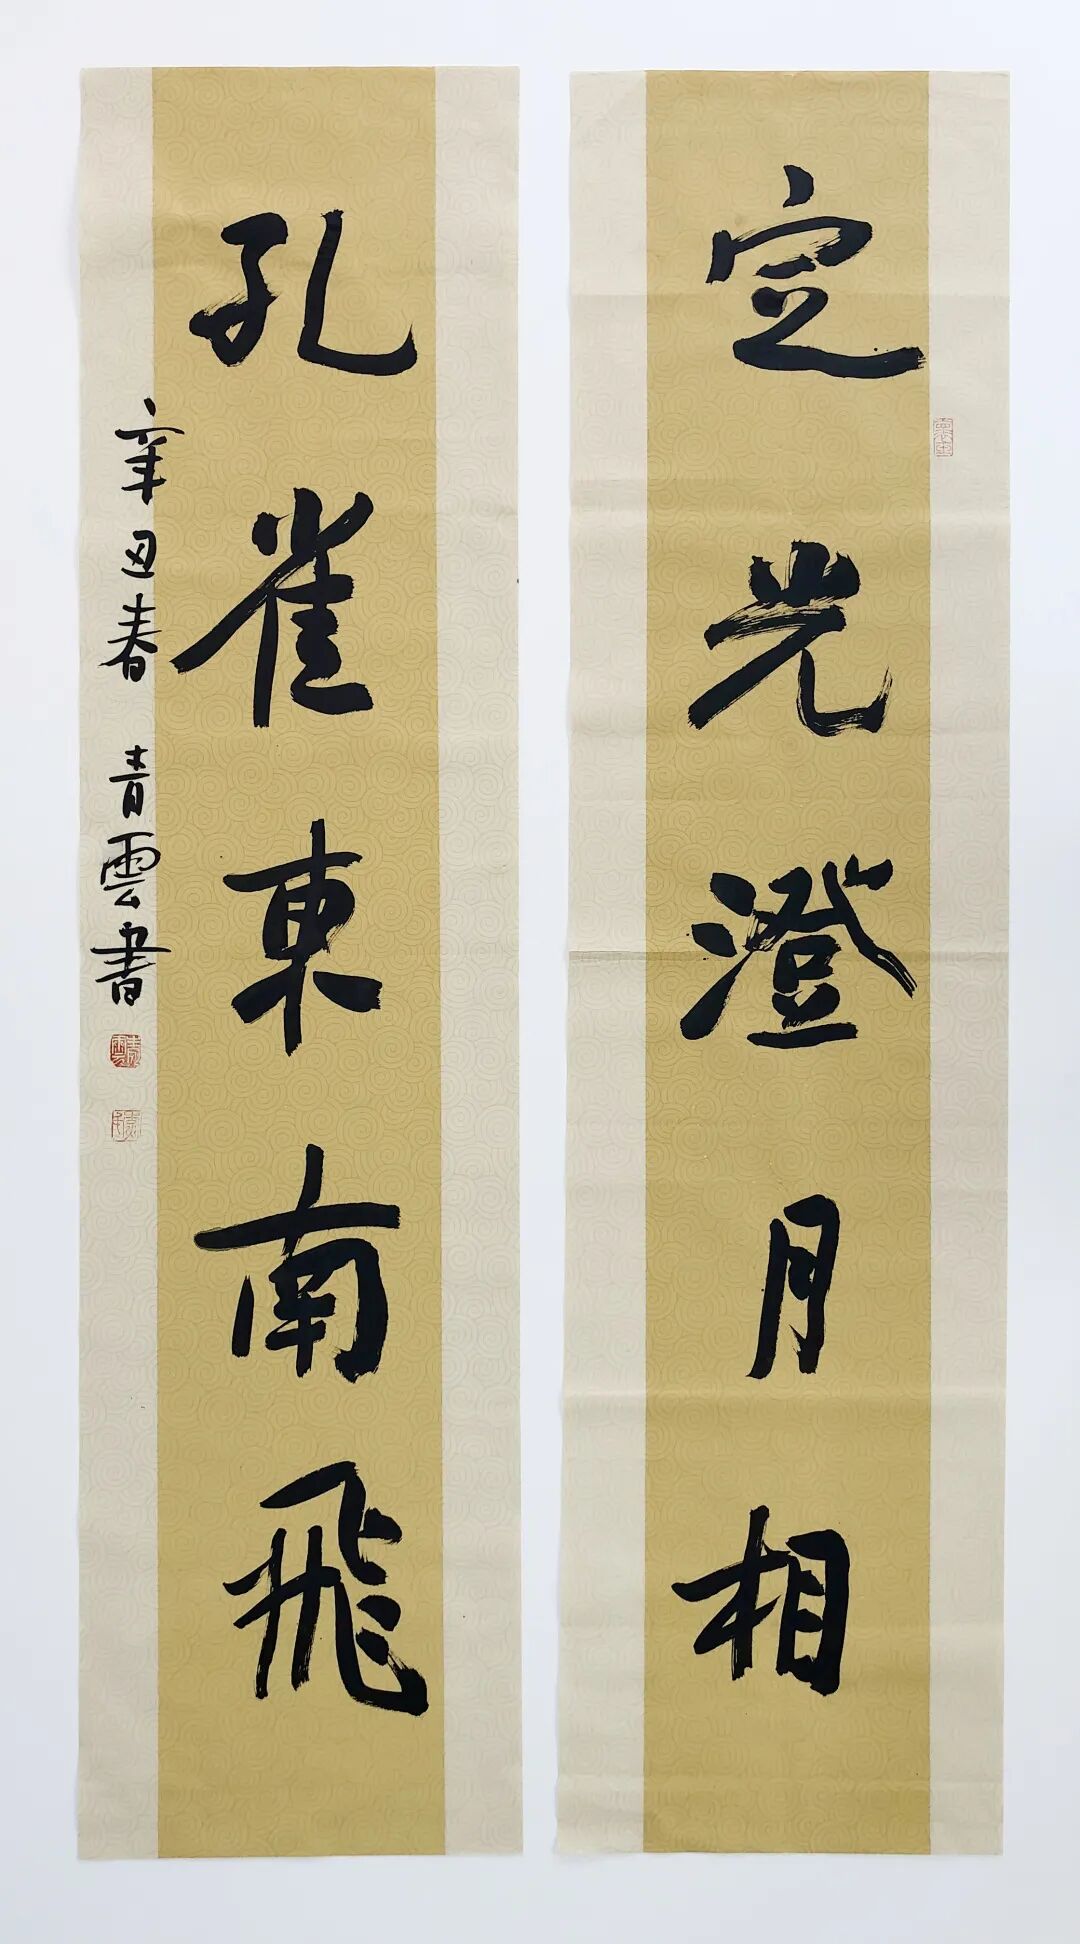 定光澄月相
孔雀東南飛
辛丑春 青雲書